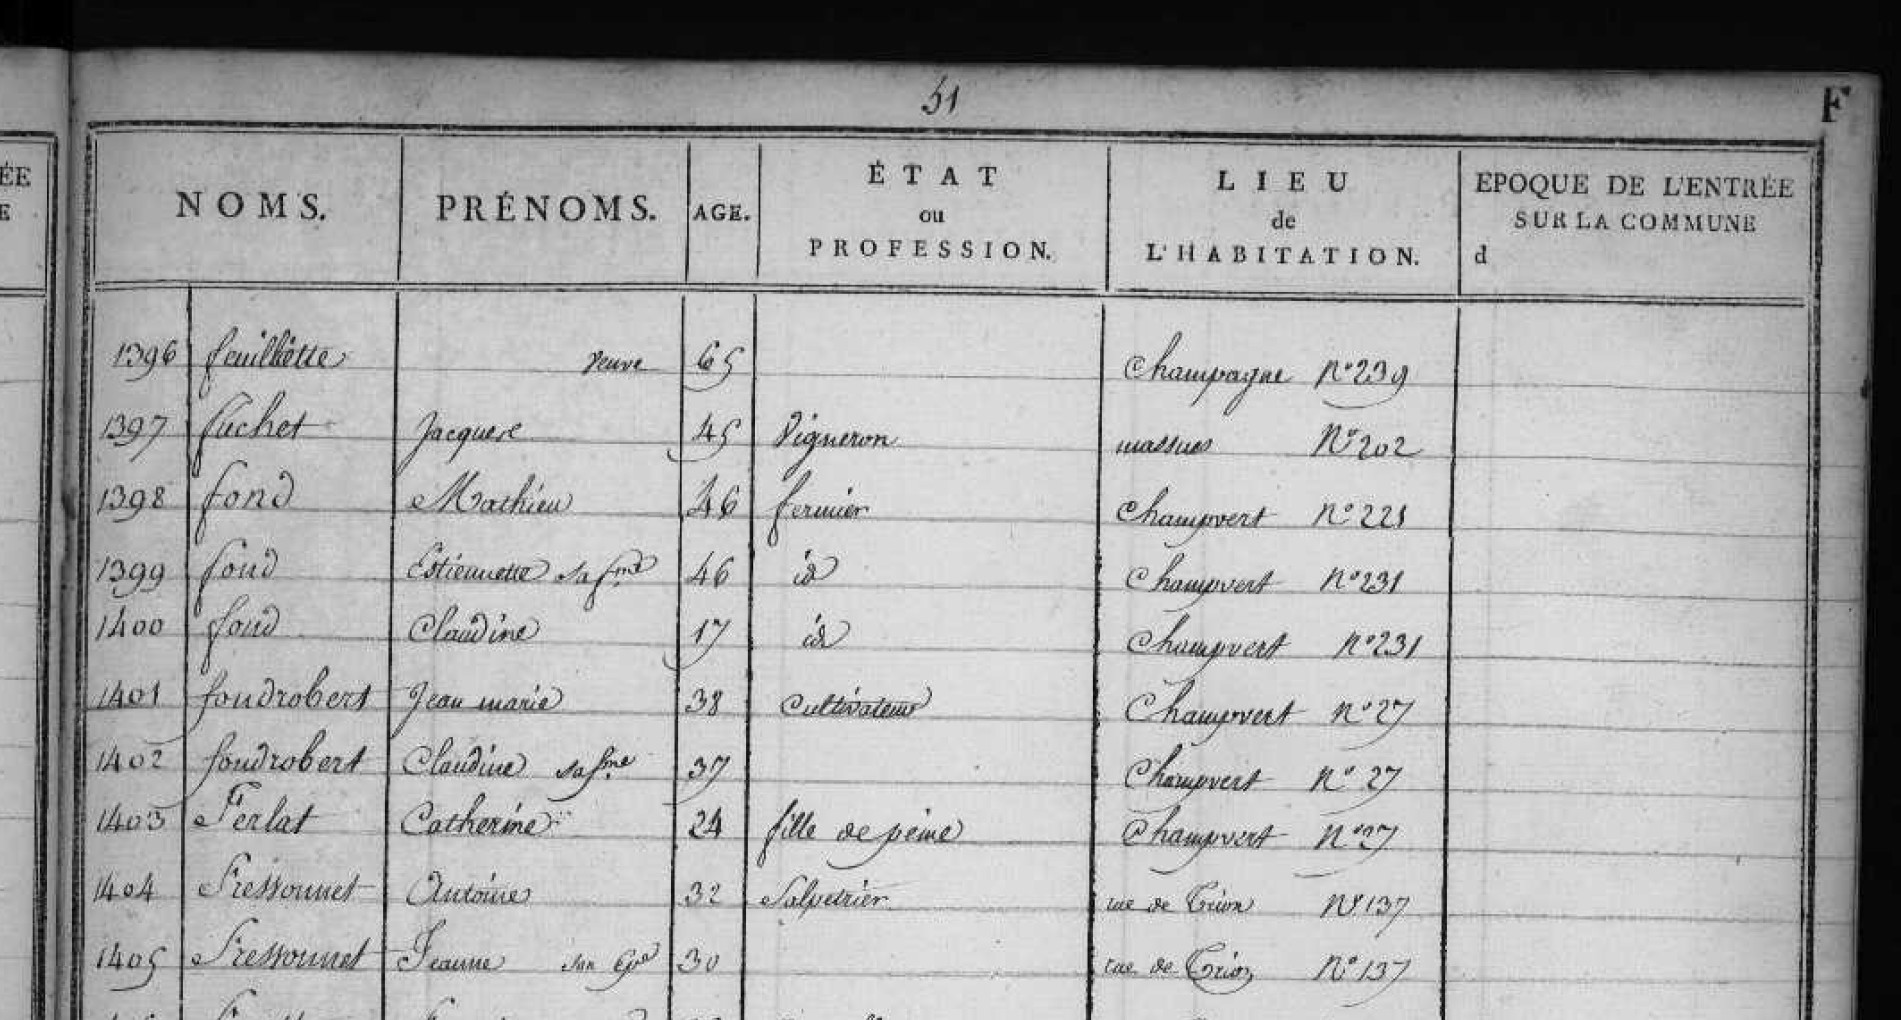 51
F
ÉE
E
NOMS. PRÉNOMS. AGE. ÉTAT ou PROFESSION. LIEU de L'HABITATION. EPOQUE DE L'ENTRÉE SUR LA COMMUNE d
1396 feuillette veuve 65 Champagne N° 239
1397 fuchet Jacques 45 Vigneron massues N° 202
1398 fond Mathieu 46 fermier Champvert N° 221
1399 fond Estiennette sa fme 46 id Champvert N° 231
1400 fond Claudine 17 id Champvert N° 231
1401 fondrobert Jean marie 38 Cultivateur Champvert N° 27
1402 fondrobert Claudine sa fme 37 Champvert N° 27
1403 Ferlat Catherine 24 fille de peine Champvert N° 27
1404 Fressonnet Antoine 32 Salpetrier rue de Trion N° 137
1405 Fressonnet Jeanne son Epse 30 rue de Trion N° 137